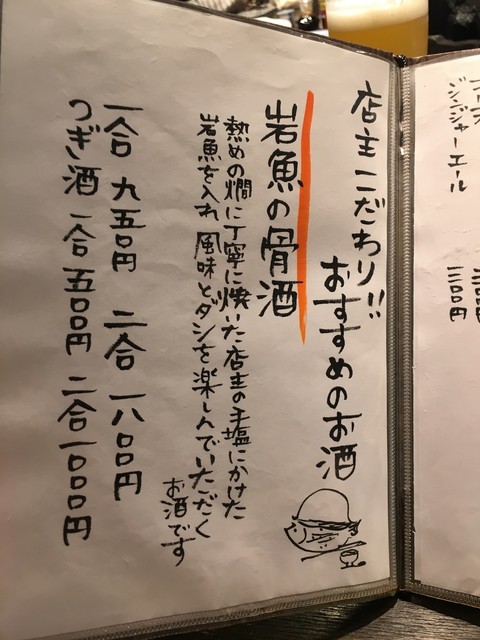 ジンジャーエール 三〇〇円
店主こだわり!!
おすすめのお酒
岩魚の骨酒
熱めの燗に丁寧に焼いた店主の手塩にかけた
岩魚を入れ 風味とダシを楽しんでいただく
お酒です
一合 九五〇円 二合 一八〇〇円
つぎ酒 一合 五〇〇円 二合 一〇〇〇円